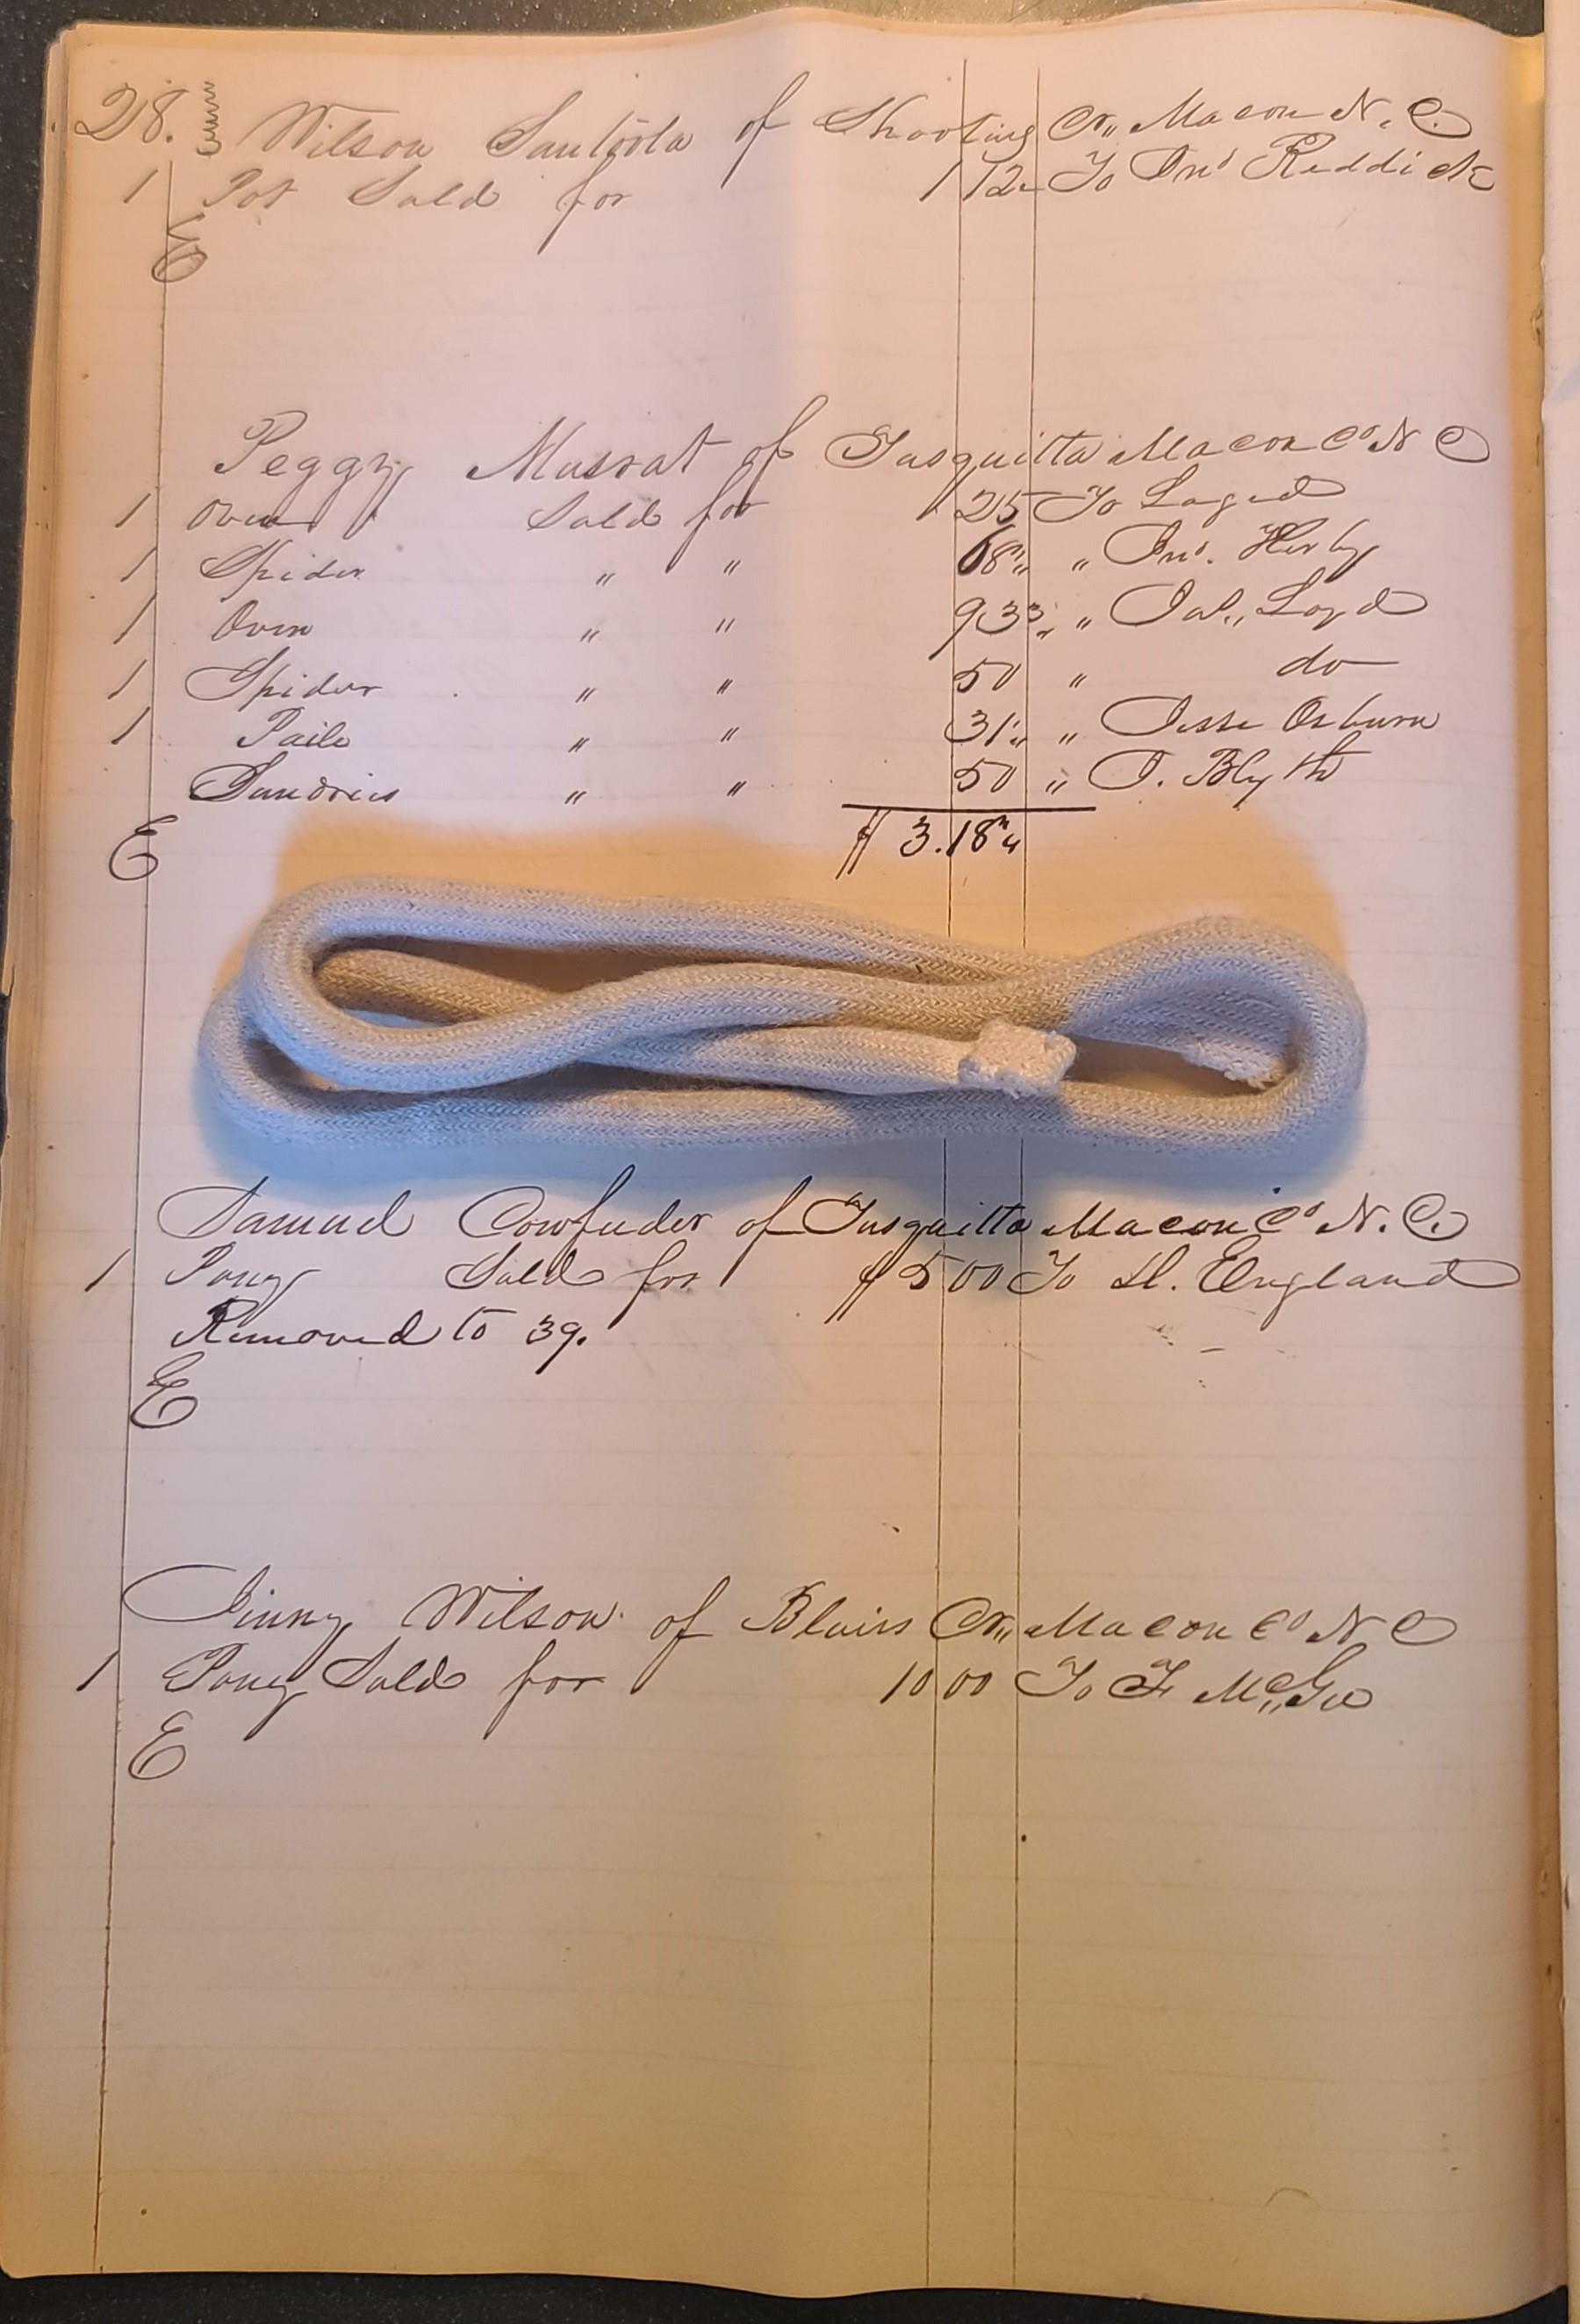 28. Wilson Santoola of Shooting Cr,, Macon N. C.
1 Pot Sold for 1 12 To Jno Reddick
E
Peggy Musrat of Tusquitta Macon Co N C
1 Oven Sold for 25 To Loyed
1 Spider " " 68 " Jno. Herby
1 Oven " " 93 " Jas,, Loyd
1 Spider " " 50 " do
1 Paile " " 31 " Jesse Osburn
Sundries " " 50 " J. Blyth
$ 3.18
E
Samuel Cowfuder of Tusquitta Macon Co N. C.
1 Pony Sold for $ 5 00 To A. England
Removed to 39.
E
Jinny Wilson of Blairs Cr,, Macon Co N C
1 Pony Sold for 10 00 To F McGee
E